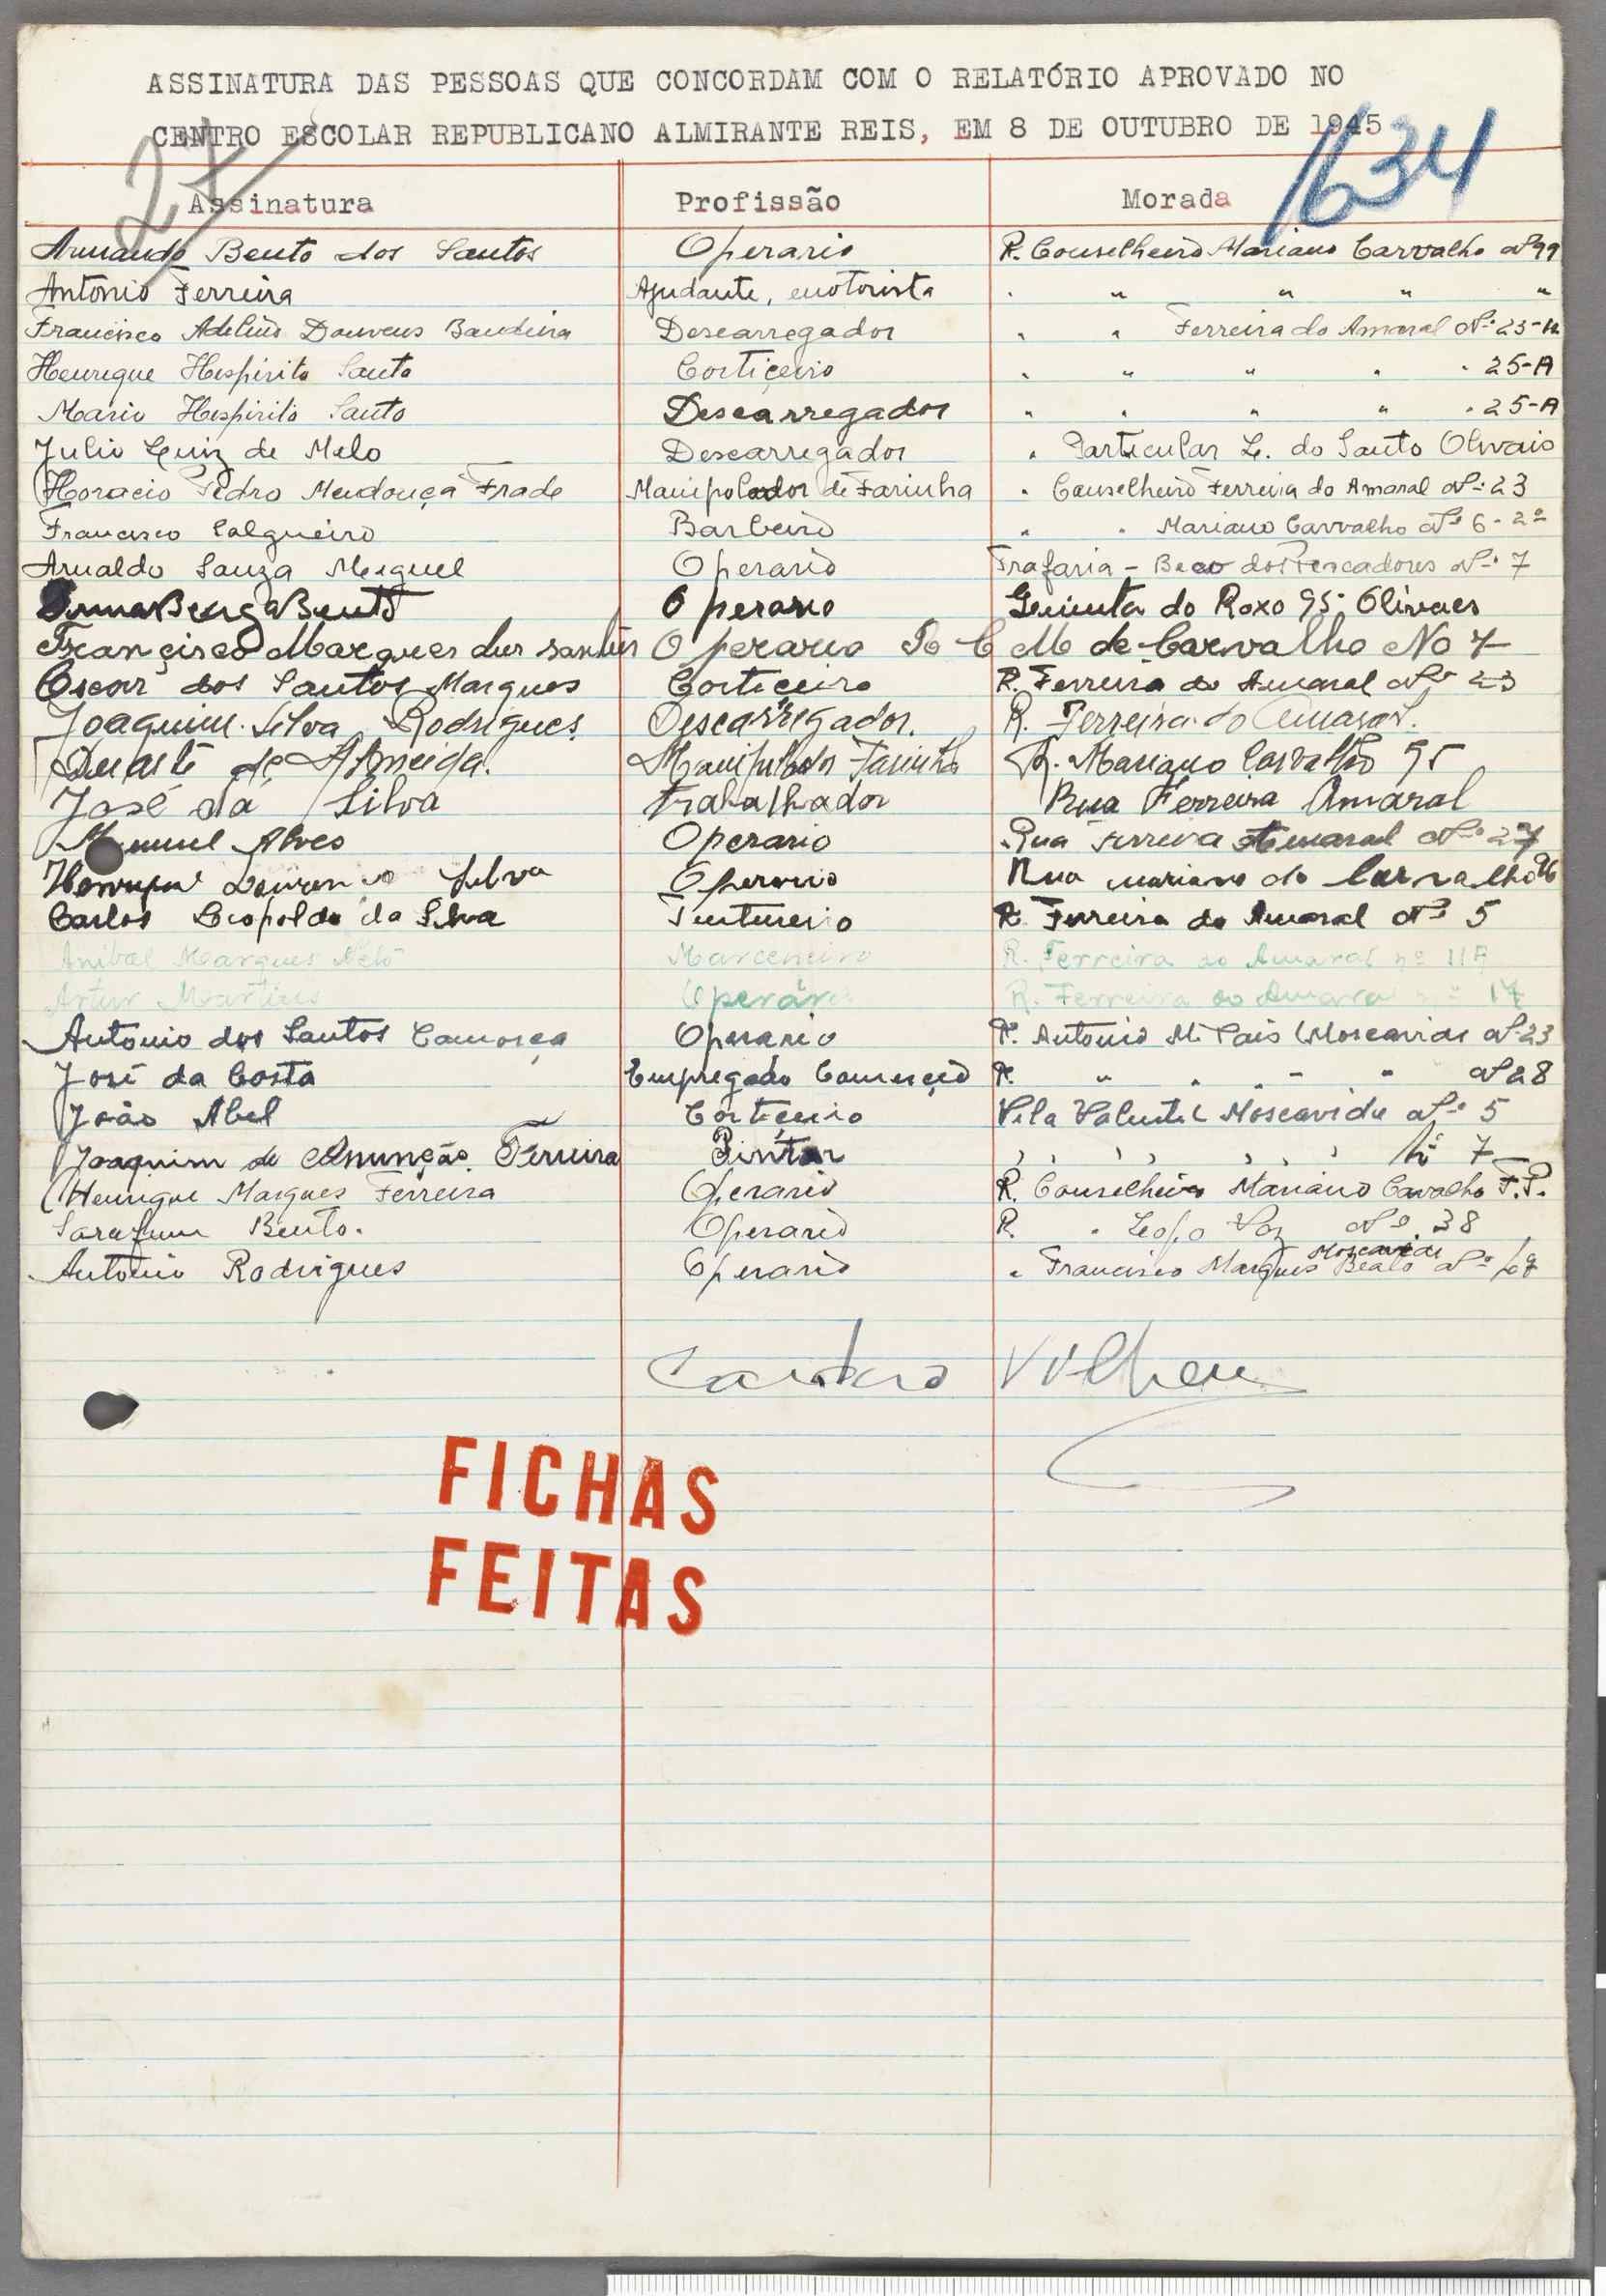 ASSINATURA DAS PESSOAS QUE CONCORDAM COM O RELATÓRIO APROVADO NO
CENTRO ESCOLAR REPUBLICANO ALMIRANTE REIS, EM 8 DE OUTUBRO DE 1945
27 1634
Assinatura Profissão Morada
Armando Bento dos Santos Operario R. Conselheiro Mariano Carvalho Nº 99
António Ferreira Ajudante, motorista " " " " "
Francisco Bandeira Descarregador " " Ferreira do Amaral Nº 23-A
Henrique Hespirito Santo Corticeiro " " " " " 25-A
Mario Hespirito Santo Descarregador " " " " " 25-A
Julio Luiz de Melo Descarregador " Particular L. do Santo Olivais
Horacio Pedro Mendonça Frade Manipolador de Farinha " Conselheiro Ferreira do Amaral Nº 23
Francisco Salgueiro Barbeiro " " Mariano Carvalho Nº 6-2º
Arnaldo Souza Miguel Operario Trafaria - Beco dos Pescadores Nº 7
Bento Operario do Roxo 95 Olivaes
Francisco Marques dos santos Operario R C M de Carvalho No 7
Oscar dos Santos Marques Corticeiro R. Ferreira do Amaral Nº 23
Joaquim Silva Rodrigues Descarregador. R. Ferreira do Amaral.
Duarte de Almeida. Manipulador Farinha R. Mariano Carvalho 95
José da Silva Trabalhador Rua Ferreira Amaral
Manuel Alves Operario Rua Ferreira Amaral Nº 27
Silva Operario Rua mariano de Carvalho
Carlos Leopoldo da Silva Tintureiro R. Ferreira do Amaral Nº 5
Anibal Marques Neto Marceneiro R. Ferreira do Amaral nº 11A
Artur Martins Operário R. Ferreira do Amaral nº 17
Antonio dos Santos Camorça Operario R. Antonio M. Pais Moscavide Nº 23
José da Costa Empregado Comercio R. " " " " Nº 28
João Abel Corticeiro Vila Valentil Moscavide Nº 5
Joaquim de Anunção Ferreira Pintor " " " " Nº 7
Henrique Marques Ferreira Operario R. Conselheiro Mariano Carvalho F.P.
Sarafim Bento. Operario R. " Lopo Vaz Nº 38
Antonio Rodrigues Operario " Francisco Marques Beato Moscavide Nº
FICHAS
FEITAS